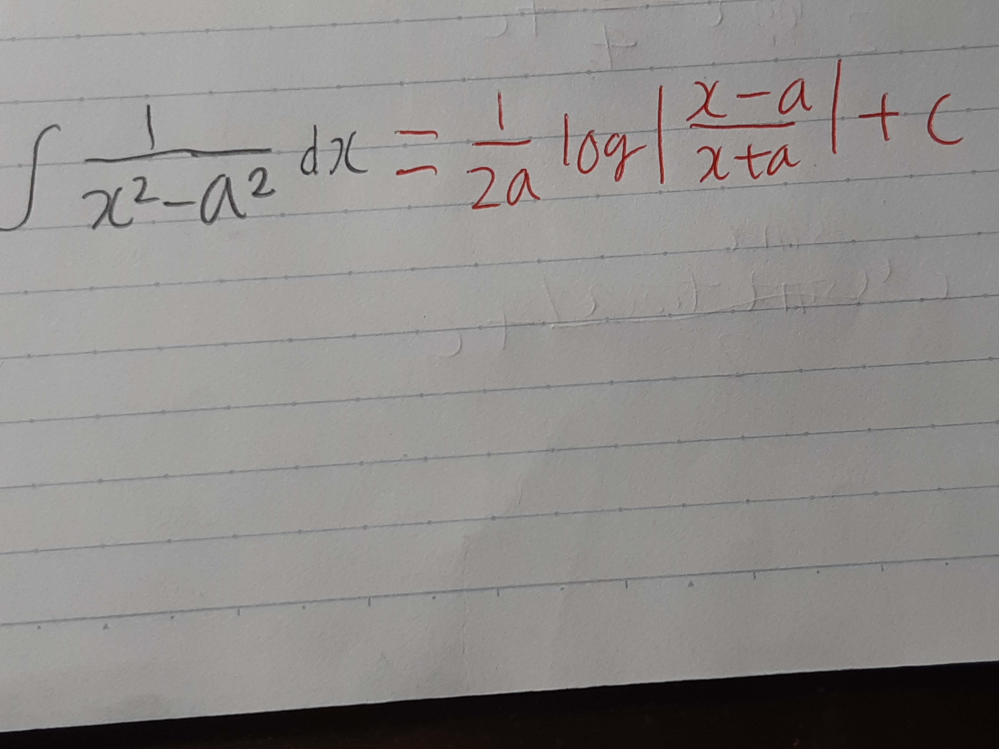 ∫ 1/(x²-a²) dx = 1/2a log|(x-a)/(x+a)| + C